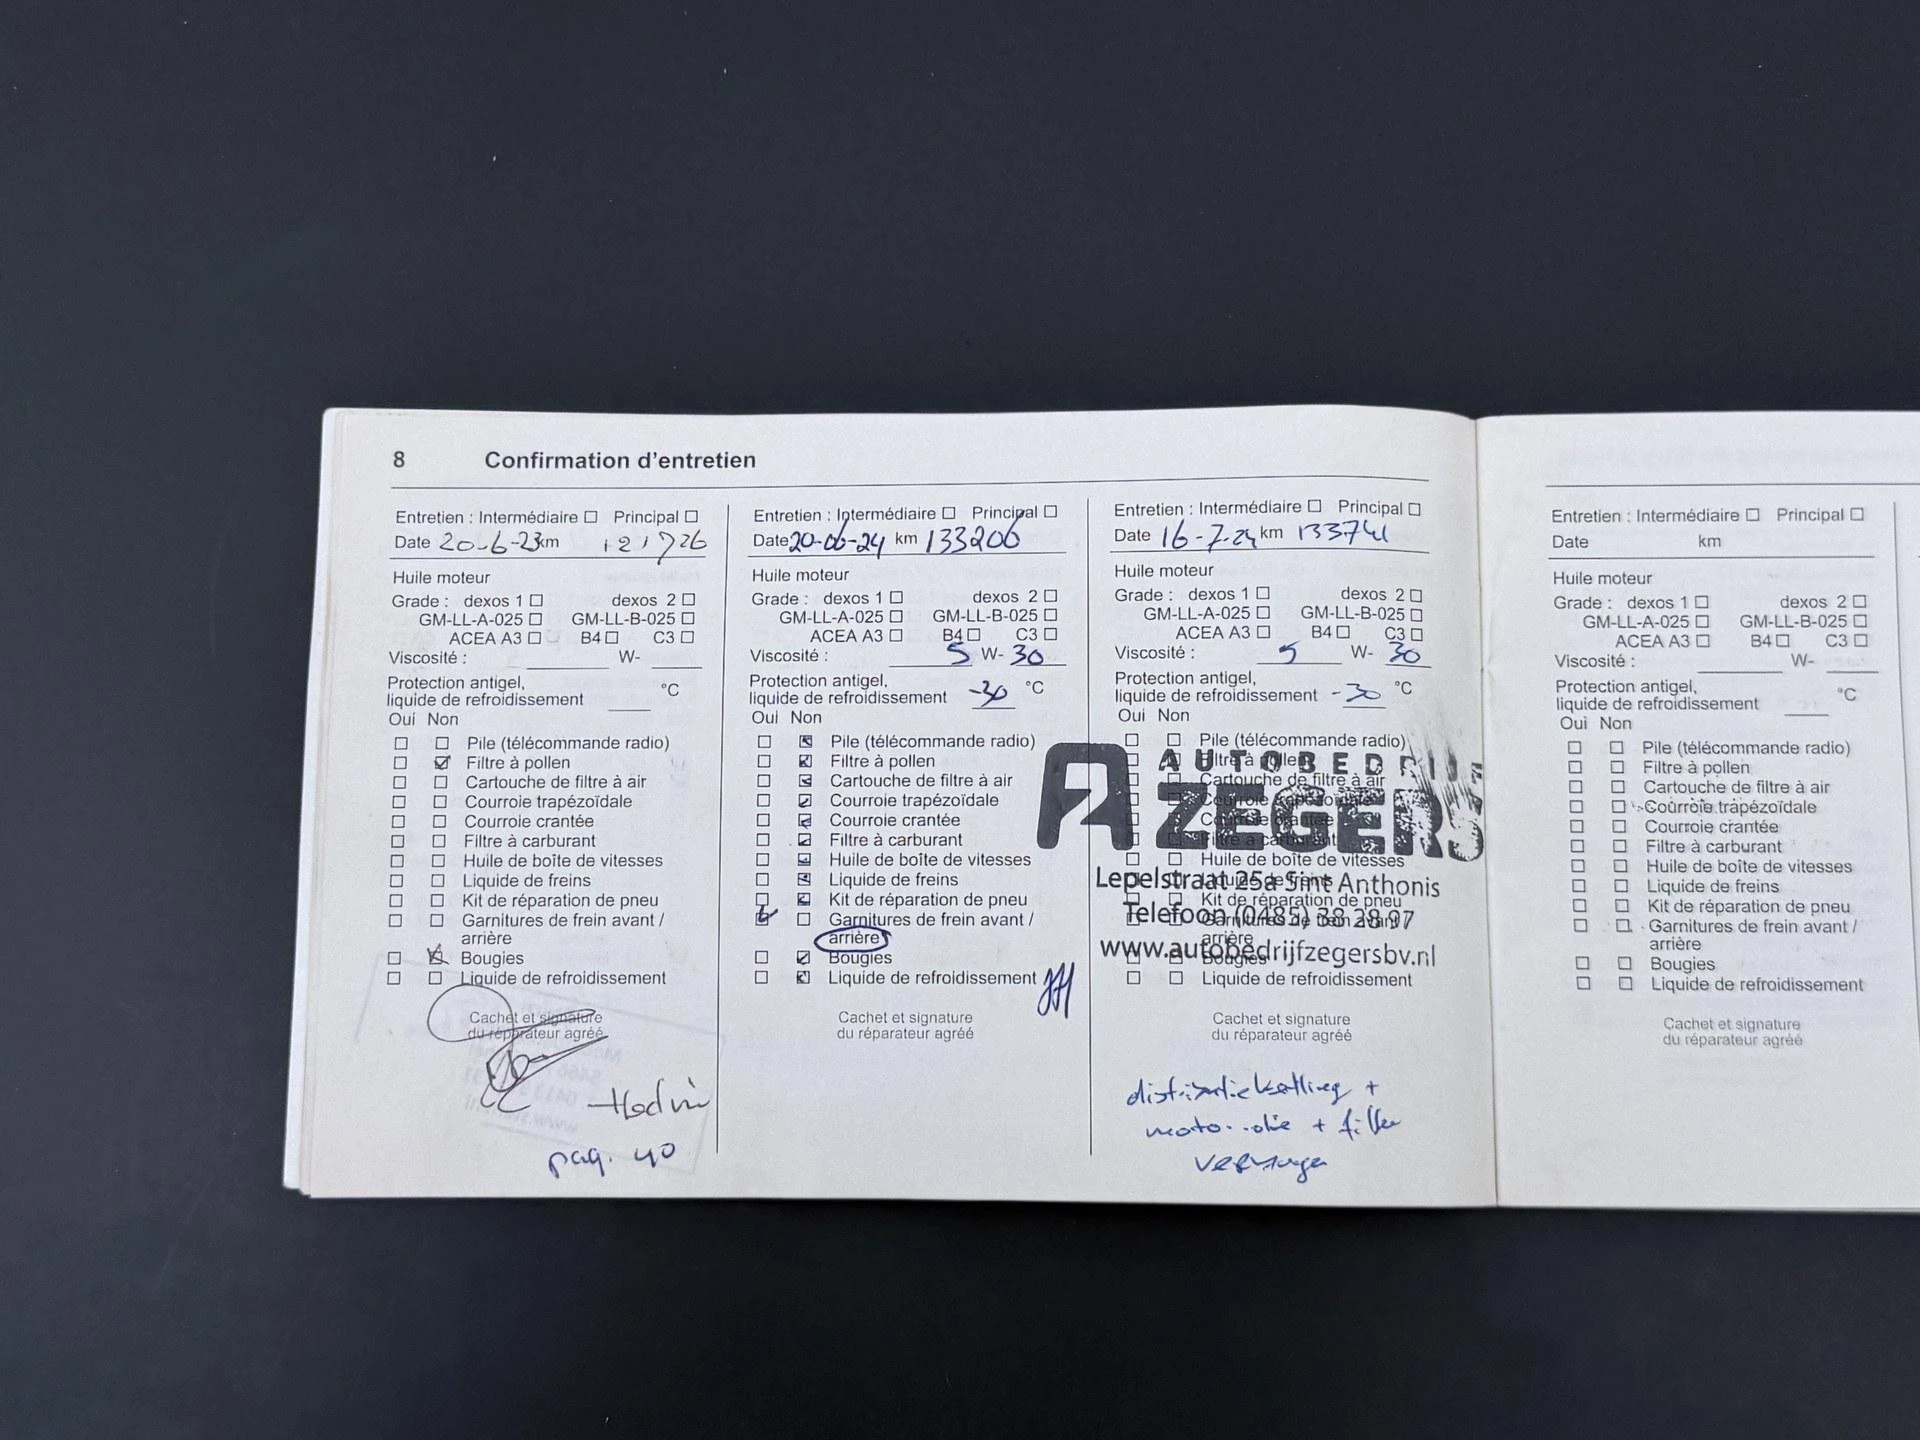 8 Confirmation d'entretien
Entretien : Intermédiaire Principal
Date 20-6-23 km 121726
Huile moteur
Grade : dexos 1 dexos 2
GM-LL-A-025 GM-LL-B-025
ACEA A3 B4 C3
Viscosité : W-
Protection antigel,
liquide de refroidissement °C
Oui Non
Pile (télécommande radio)
Filtre à pollen
Cartouche de filtre à air
Courroie trapézoïdale
Courroie crantée
Filtre à carburant
Huile de boîte de vitesses
Liquide de freins
Kit de réparation de pneu
Garnitures de frein avant /
arrière
Bougies
Liquide de refroidissement
Cachet et signature
du réparateur agréé
pag. 40
Entretien : Intermédiaire Principal
Date 20-06-24 km 133206
Huile moteur
Grade : dexos 1 dexos 2
GM-LL-A-025 GM-LL-B-025
ACEA A3 B4 C3
Viscosité : 5 W- 30
Protection antigel,
liquide de refroidissement -30 °C
Oui Non
Pile (télécommande radio)
Filtre à pollen
Cartouche de filtre à air
Courroie trapézoïdale
Courroie crantée
Filtre à carburant
Huile de boîte de vitesses
Liquide de freins
Kit de réparation de pneu
Garnitures de frein avant /
arrière
Bougies
Liquide de refroidissement
Cachet et signature
du réparateur agréé
Entretien : Intermédiaire Principal
Date 16-7-24 km 133741
Huile moteur
Grade : dexos 1 dexos 2
GM-LL-A-025 GM-LL-B-025
ACEA A3 B4 C3
Viscosité : 5 W- 30
Protection antigel,
liquide de refroidissement -30 °C
Oui Non
Pile (télécommande radio)
Filtre à pollen
Cartouche de filtre à air
Courroie trapézoïdale
Courroie crantée
Filtre à carburant
Huile de boîte de vitesses
Liquide de freins
Kit de réparation de pneu
Garnitures de frein avant /
arrière
Bougies
Liquide de refroidissement
AUTOBEDRIJF
ZEGERS
Lepelstraat 25a Sint Anthonis
Telefoon (0485) 38 28 97
www.autobedrijfzegersbv.nl
Cachet et signature
du réparateur agréé
distributieketting +
motorolie + filter
vervangen
Entretien : Intermédiaire Principal
Date km
Huile moteur
Grade : dexos 1 dexos 2
GM-LL-A-025 GM-LL-B-025
ACEA A3 B4 C3
Viscosité : W-
Protection antigel,
liquide de refroidissement °C
Oui Non
Pile (télécommande radio)
Filtre à pollen
Cartouche de filtre à air
Courroie trapézoïdale
Courroie crantée
Filtre à carburant
Huile de boîte de vitesses
Liquide de freins
Kit de réparation de pneu
Garnitures de frein avant /
arrière
Bougies
Liquide de refroidissement
Cachet et signature
du réparateur agréé